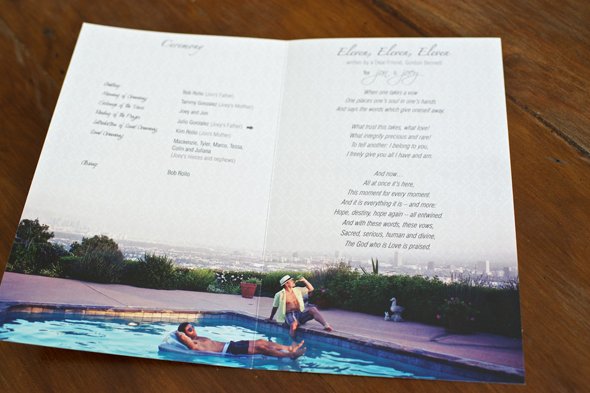 Ceremony
Greeting:
Bob Rollo (Jon's Father)
Tammy Gonzalez (Joey's Mother)
Joey and Jon
Julio Gonzalez (Joey's Father)
Kim Rollo (Jon's Mother)
Mackenzie, Tyler, Marco, Tessa,
Colin and Juliana
(Joey's nieces and nephews)
Closing
Bob Rollo
Eleven, Eleven, Eleven
written by a Dear Friend, Gordon Bennett
for Jon & Joey
When one takes a vow
One places one's soul in one's hands
And says the words which give oneself away.
What trust this takes, what love!
What integrity precious and rare!
To tell another: I belong to you,
I freely give you all I have and am.
And now…
All at once it's here,
This moment for every moment.
And it is everything it is – and more:
Hope, destiny, hope again – all entwined.
And with these words, these vows,
Sacred, serious, human and divine,
The God who is Love is praised.